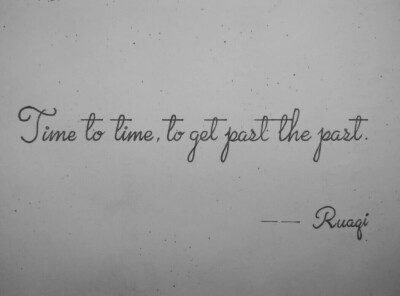 Time to time, to get past the past.
—— Ruaqi